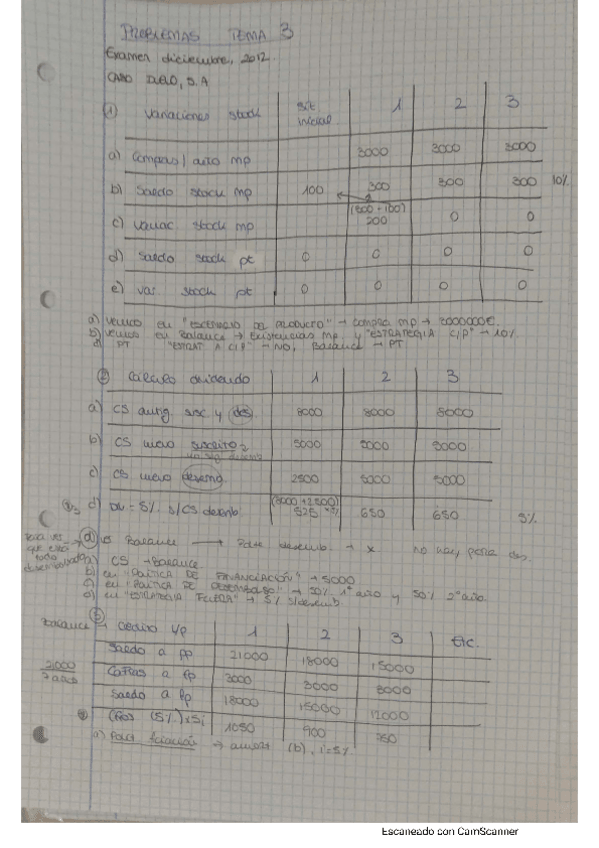 PROBLEMAS TEMA 3
Examen diciembre, 2012
CASO DUO, S.A
① Variaciones stock sit. inicial 1 2 3
a) Compras/año mp 3000 3000 3000
b) Saldo stock mp 100 300 300 300 10%
c) Variac. stock mp (300-100) 200 0 0
d) Saldo stock pt 0 0 0 0
e) var. stock pt 0 0 0 0
a) vemos en "ESCENARIO DE PRODUCTO" → compra mp → 3000000€.
b) vemos en Balance → Existencias mp y "ESTRATEGIA C/P" → 10%
d) PT "ESTRAT A C/P" → NO, Balance → PT
② Cálculo dividendo 1 2 3
a) CS antig. susc y des 8000 8000 8000
b) CS nuevo suscrito 5000 5000 5000
c) CS nuevo desemb. 2500 5000 5000
d) Div = 5% s/CS desemb. (8000+2500) x5% 525 650 650 5%
a) CS → Balance
b) en "POLÍTICA DE FINANCIACIÓN" → 5000
c) en "POLÍTICA DE DESEMBOLSO" → 50% 1º año y 50% 2º año.
d) en → 5% s/desemb
③
Balance → Crédito l/p 1 2 3 Etc.
Saldo a pp 21000 18000 15000
21000 / 7 años
Cuotas a pp 3000 3000 3000
Saldo a fp 18000 15000 12000
(5%) x Si 1050 900 750
a) → amort (b), i=5%
Escaneado con CamScanner